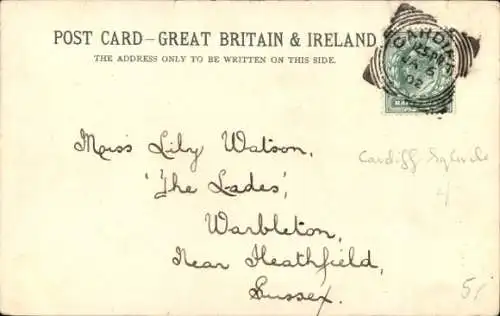 POST CARD—GREAT BRITAIN & IRELAND
THE ADDRESS ONLY TO BE WRITTEN ON THIS SIDE.
CARDIFF
02
Miss Lily Watson,
'The Lades',
Warbleton,
Near Heathfield,
Sussex.
Cardiff